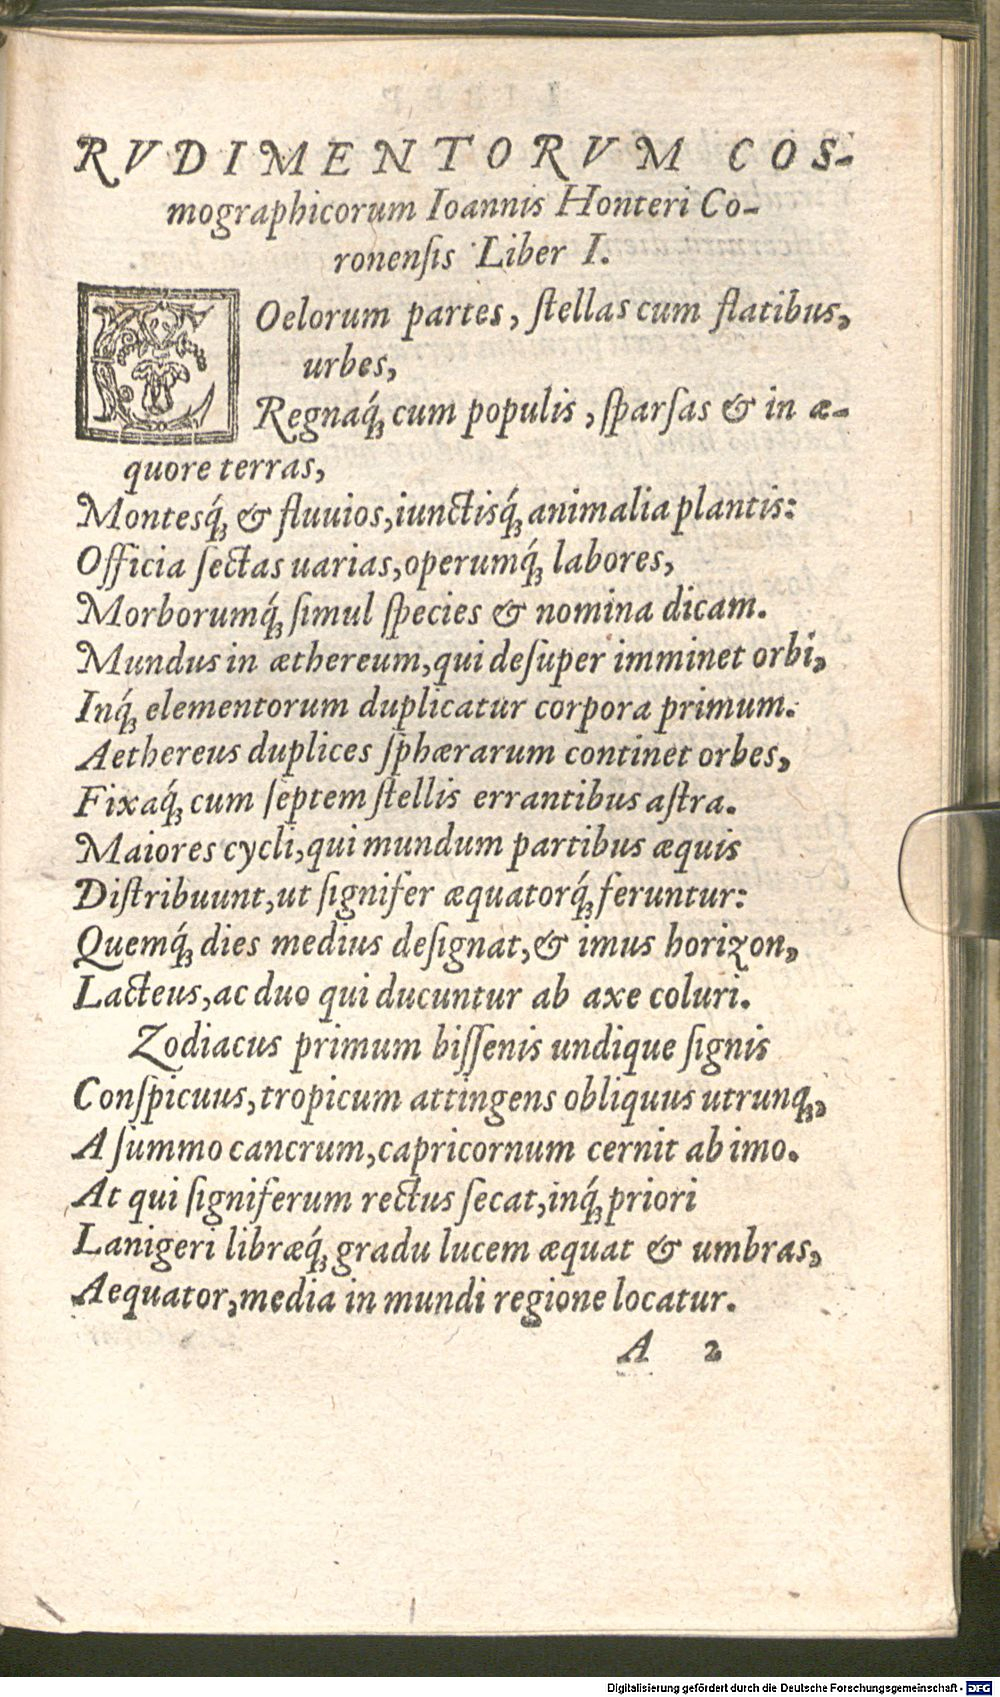 RVDIMENTORVM COS-
mographicorum Ioannis Honteri Co-
ronenſis Liber I.
COelorum partes, ſtellas cum flatibus,
urbes,
Regnaq́; cum populis, ſparſas & in æ-
quore terras,
Montesq́; & fluuios, iunctisq́; animalia plantis:
Officia ſectas uarias, operumq́; labores,
Morborumq́; ſimul ſpecies & nomina dicam.
Mundus in æthereum, qui deſuper imminet orbi,
Inq́; elementorum duplicatur corpora primum.
Aethereus duplices ſphærarum continet orbes,
Fixaq́; cum ſeptem ſtellis errantibus aſtra.
Maiores cycli, qui mundum partibus æquis
Diſtribuunt, ut ſignifer æquatorq́; feruntur:
Quemq́; dies medius deſignat, & imus horizon,
Lacteus, ac duo qui ducuntur ab axe coluri.
Zodiacus primum biſſenis undique ſignis
Conſpicuus, tropicum attingens obliquus utrunq;,
A ſummo cancrum, capricornum cernit ab imo.
At qui ſigniferum rectus ſecat, inq́; priori
Lanigeri libræq́; gradu lucem æquat & umbras,
Aequator, media in mundi regione locatur.
A 2
Digitalisierung gefördert durch die Deutsche Forschungsgemeinschaft - DFG